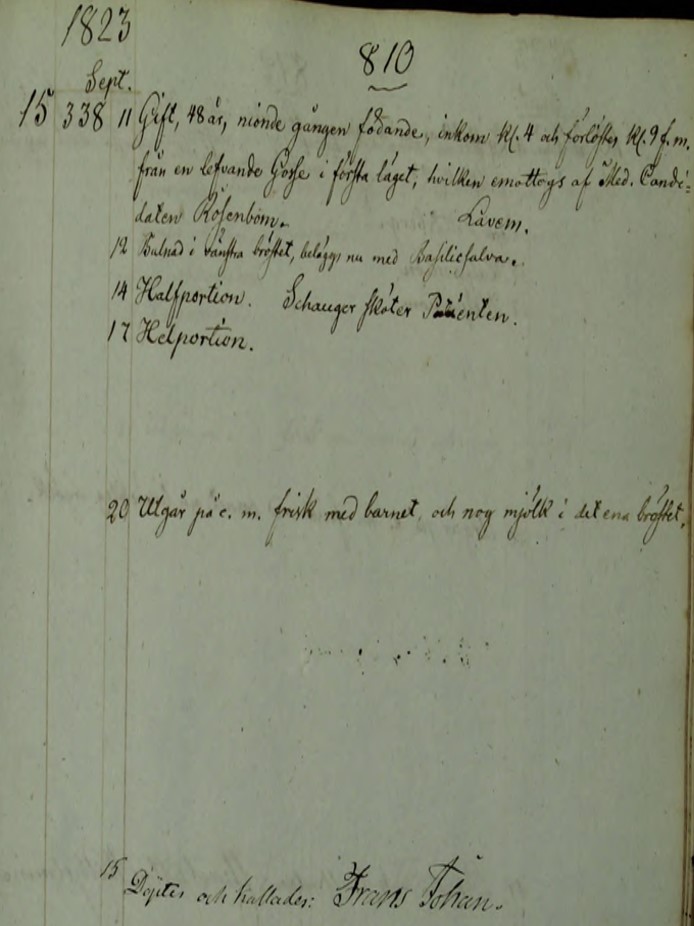 1823
810
Sept.
15 338 11 Gift, 48 år, nionde gången födande, inkom kl. 4 och förlöstes kl. 9 f.m.
från en lefvande Gosse i första läget, hvilken emottogs af Med. Candi-
daten Rosenbom. Lavem.
12 Bulnad i vänstra bröstet, belägges nu med Basilicsalva.
14 Halfportion. Schauger sköter Patienten.
17 Helportion.
20 Utgår på e. m. frisk med barnet, och nog mjölk i det ena bröstet,
15 Döptes och kallades: Frans Johan.